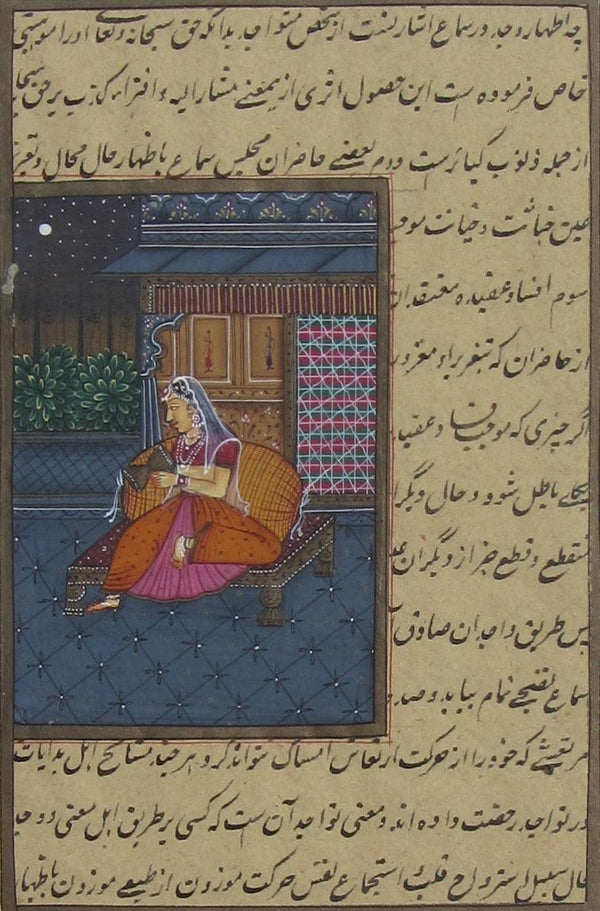 چه اظهار وجد در سماع اشارتست از شخص متواجد بدانکه حق سبحانه و تعالی او را موهبتی
خاص فرموده است این حصول اثری از یمعنے مشار الیه و افترا و کذب بر حق سبحا
از جمله ذنوب کبائرست دوم بعضے حاضران مجلس سماع باظهار حال محال و تغریر
عین خباثت و خیانت موجب
سوم افساد عقیده معتقدان
از حاضران که تبغریر او مغرور
اگر چیزی که موجب فساد عقیده
بکلے باطل شود و حال دیگران
منقطع و قطع خیر از دیگران عین
پس طریق واجدان صادق
سماع تقبیحے تمام بیابد و صد
مرتعشے که خود را از حرکت ارتعاش امساک نتواند کرد و هر چند مشائخ اهل بدایات
در تواجد رخصت داده اند و معنی تواجد آن ست که کسی بر طریق اهل معنی و وجد
حال سبیل استرواح قلب و استجماع نفس حرکت موزون از طبیعے موزون باظهار